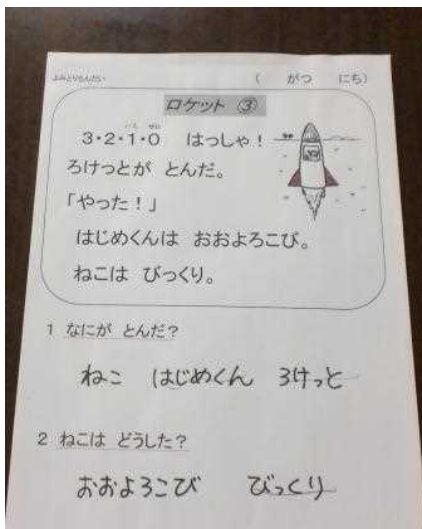 よみとりもんだい
( がつ にち)
ロケット ③
いち ぜろ
3・2・1・0 はっしゃ!
ろけっとが とんだ。
「やった!」
はじめくんは おおよろこび。
ねこは びっくり。
1 なにが とんだ?
ねこ はじめくん ろけっと
2 ねこは どうした?
おおよろこび びっくり